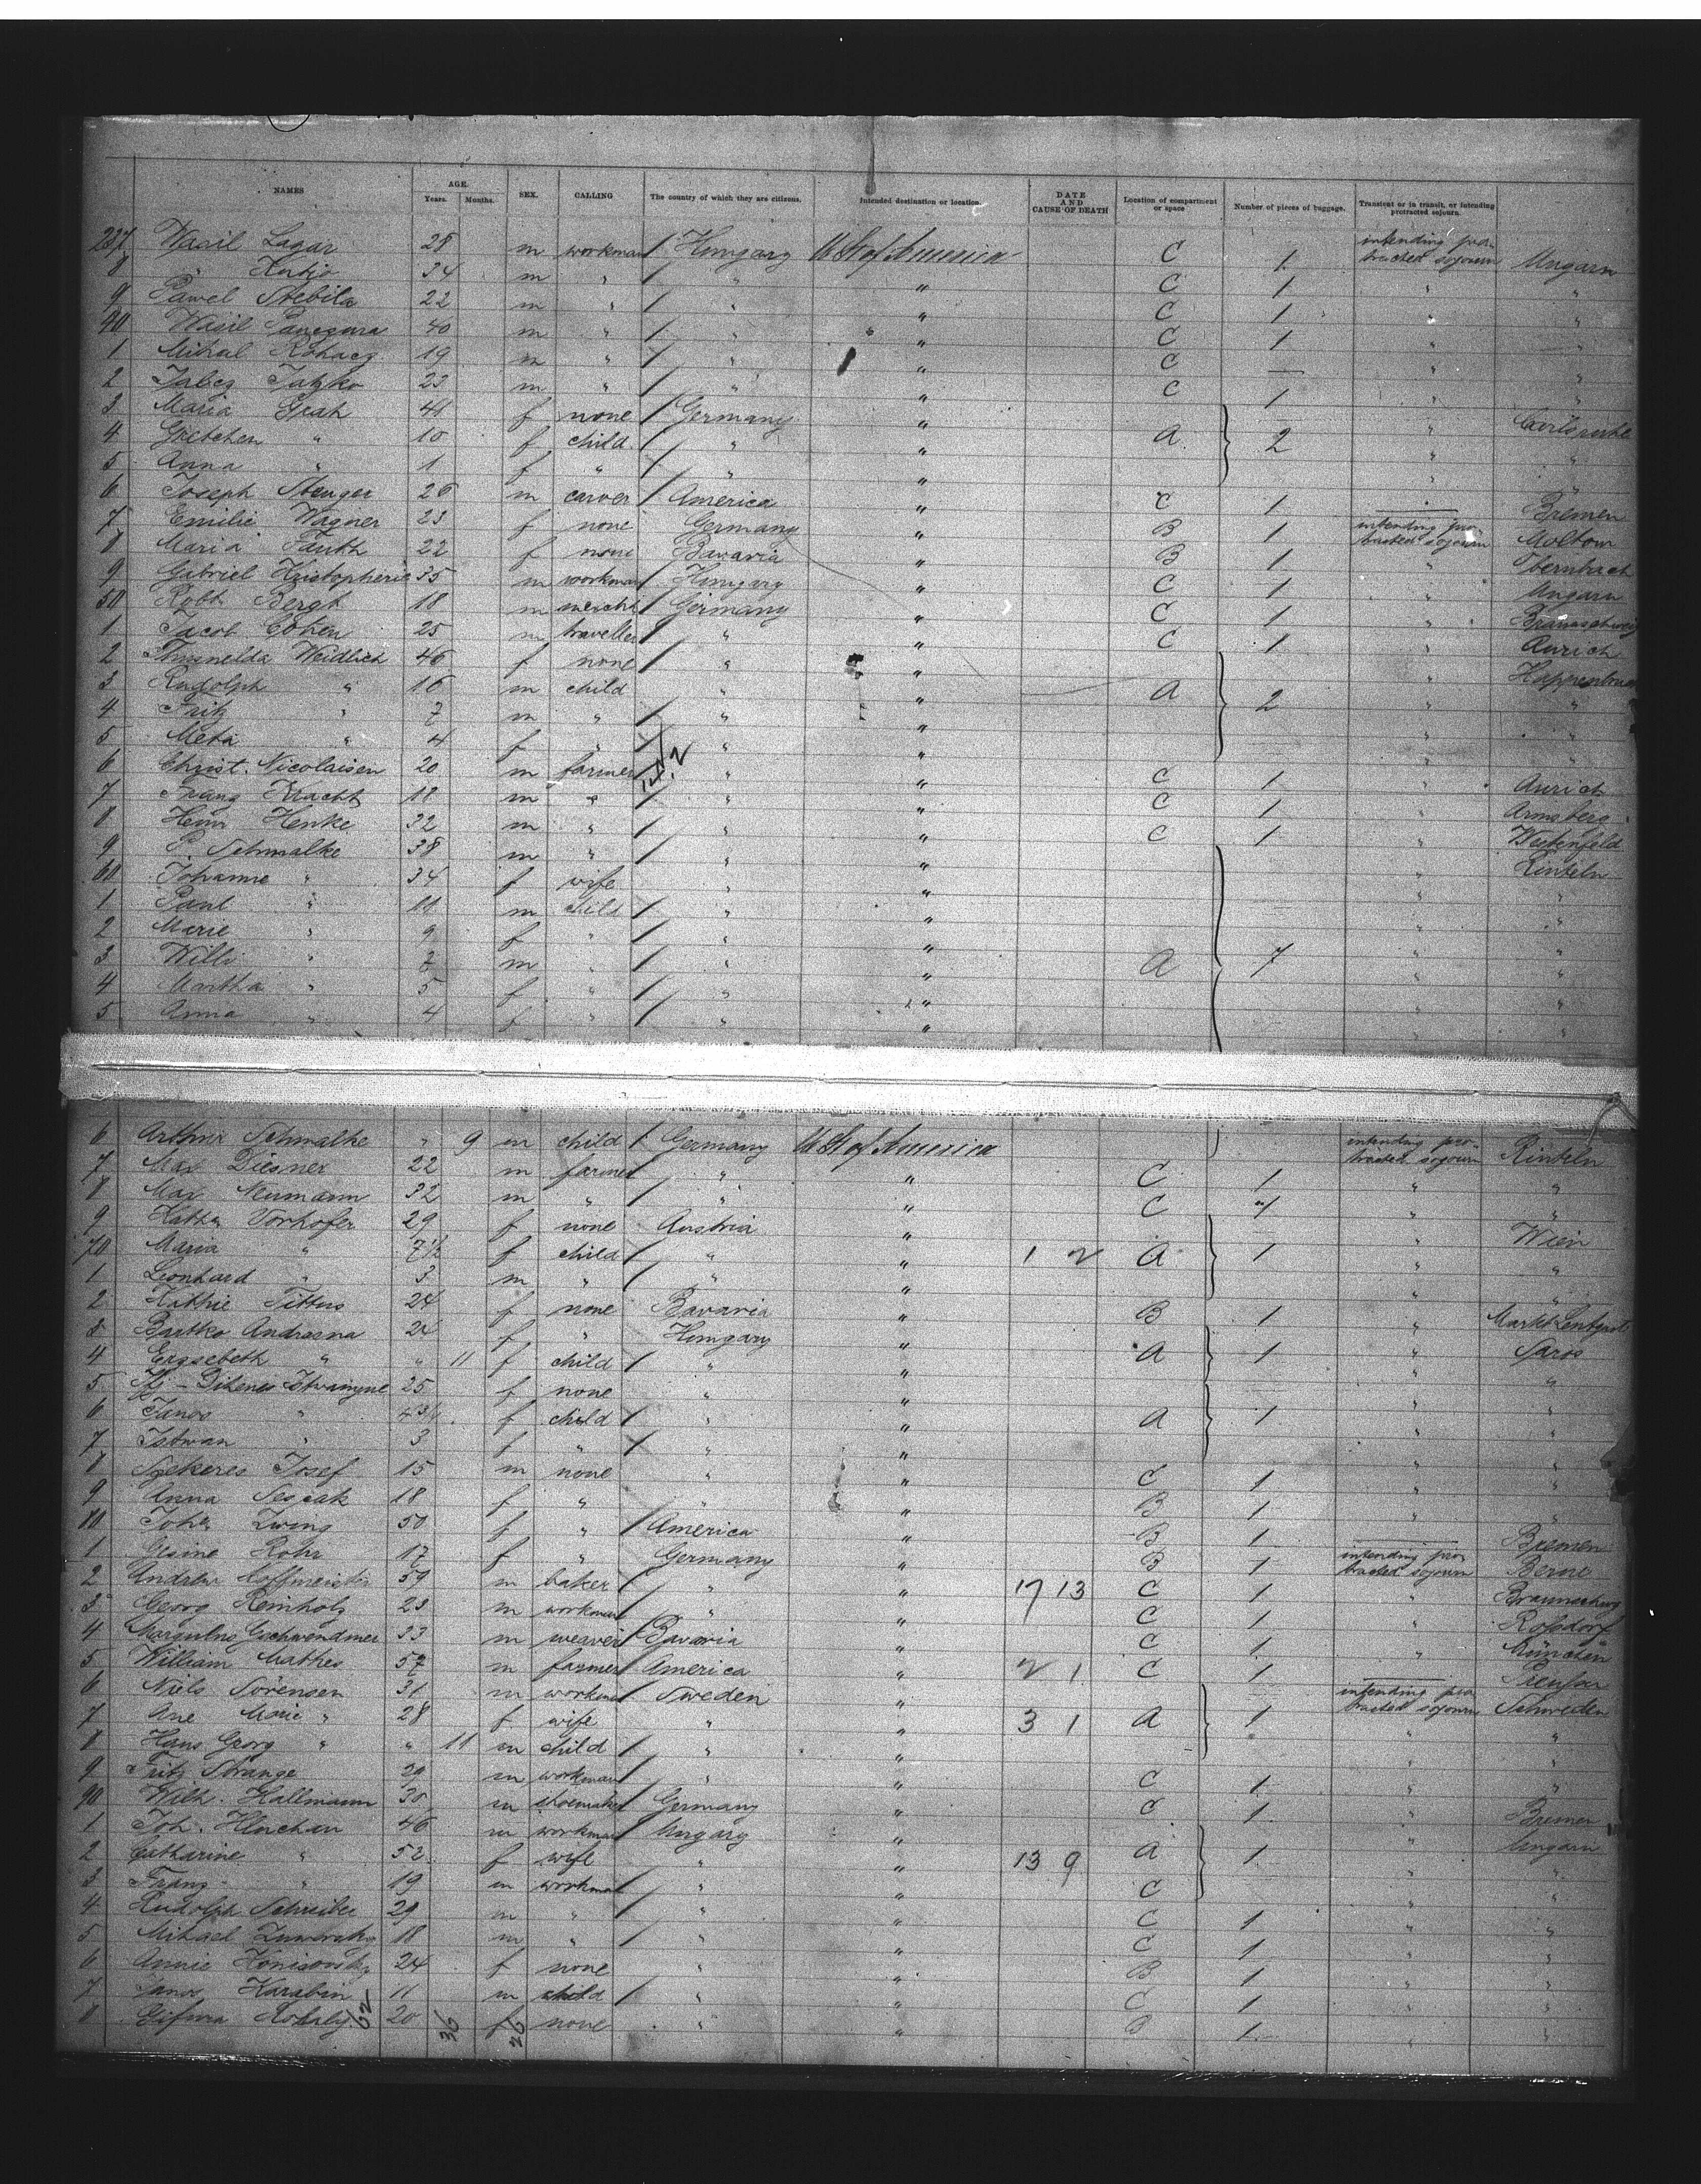 NAMES AGE. Years. Months. SEX. CALLING The country of which they are citizens. Intended destination or location. DATE AND CAUSE OF DEATH Location of compartment or space Number of pieces of baggage. Transient or in transit, or intending protracted sojourn.
237 Wasil Lagar 28 m workman Hungary U St of America C 1 intending protracted sojourn Ungarn
8 " 34 m " " " C 1 " "
9 Pawel Stebila 22 m " " " C 1 " "
40 Wasil 40 m " " " C 1 " "
1 Mihal Rohacz 19 m " " " C — " "
2 23 m " " " C 1 " "
3 Maria Grah 41 f none Germany " " Carlsruhe
4 Gretchen " 10 f child " " A 2 " "
5 Anna " 1 f " " " " "
6 Joseph Stenger 26 m carver America " C 1 — Bremen
7 Emilie Wagner 23 f none Germany " B 1 intending protracted sojourn
8 Maria Fauth 22 f none Bavaria " B 1 "
9 Gabriel 35 m workman Hungary " C 1 " Ungarn
50 Robt Bergh 18 m mercht Germany " C 1 " Braunschweig
1 Jacob Cohen 25 m traveller " " C 1 " Aurich
2 Thusnelda Weidlich 46 f none " " "
3 Rudolph " 16 m child " " A 2 " "
4 Fritz " 7 m " " " " "
5 Meta " 4 f " " " " "
6 Christ. Nicolaisen 20 m farmer " " C 1 " Aurich
7 Franz Kracht 18 m " " " C 1 " Arnsberg
8 Henke 32 m " " " C 1 " Westenfeld
9 P. Schmalke 38 m " " " " Rinteln
60 Johanne " 34 f wife " " " "
1 Paul " 11 m child " " " "
2 Marie " 9 f " " " " "
3 Willi " 7 m " " " A 7 " "
4 Martha " 5 f " " " " "
5 Anna " 4 f " " " " "
6 Arthur Schmalke " 9 m child Germany U St of America intending protracted sojourn Rinteln
7 Max Diesner 22 m farmer " " C 1 " "
8 Max Neumann 32 m " " " C 1 " "
9 Kath. Vorhofer 29 f none Austria " " Wien
70 Maria " 7½ f child " " 1 2 A 1 " "
1 Leonhard " 3 m " " " " "
2 Kathie Tittus 24 f none Bavaria " B 1 "
3 Bartko Andrasna 24 f " Hungary " A 1 " Saros
4 Erzsebeth " " 11 f child " " " "
5 25 f none " " " "
6 Janos " f child " " A 1 " "
7 Istwan " 3 f " " " " "
8 Szekeres Josef 15 m none " " C 1 " "
9 Anna 18 f " " " B 1 " "
80 Zwing 50 f " America " B 1 Bremen
1 Gesine Rohr 17 f " Germany " B 1 intending protracted sojourn Berne
2 Andrew Hoffmeister 59 m baker " " 17 13 C 1 " Braunschweig
3 Georg Reinholz 23 m workman " " C 1 " Rossdorf
4 Gschwendmer 33 m weaver Bavaria " C 1 " München
5 William Mathes 57 m farmer America " 2 1 C 1 —
6 Niels Sörensen 31 m workman Sweden " intending protracted sojourn Schweden
7 Ane Marie " 28 f wife " " 3 1 A 1 " "
8 Hans Georg " " 11 m child " " " "
9 Fritz Strange 29 m workman " " C 1 " "
90 Wilh. Hallmann 30 m shoemaker Germany " C 1 " Bremen
1 Joh. 46 m workman Ungary " " Ungarn
2 Catharine " 52 f wife " " 13 9 A 1 " "
3 Franz " 19 m workman " " C " "
4 Rudolph Schreiber 29 m " " " C 1 " "
5 Mihael 18 m " " " C 1 " "
6 Annie 24 f none " " B 1 " "
7 Janos Karabin 11 m child " " C 1 " "
8 20 f none " " B 1 " "
62 36 26